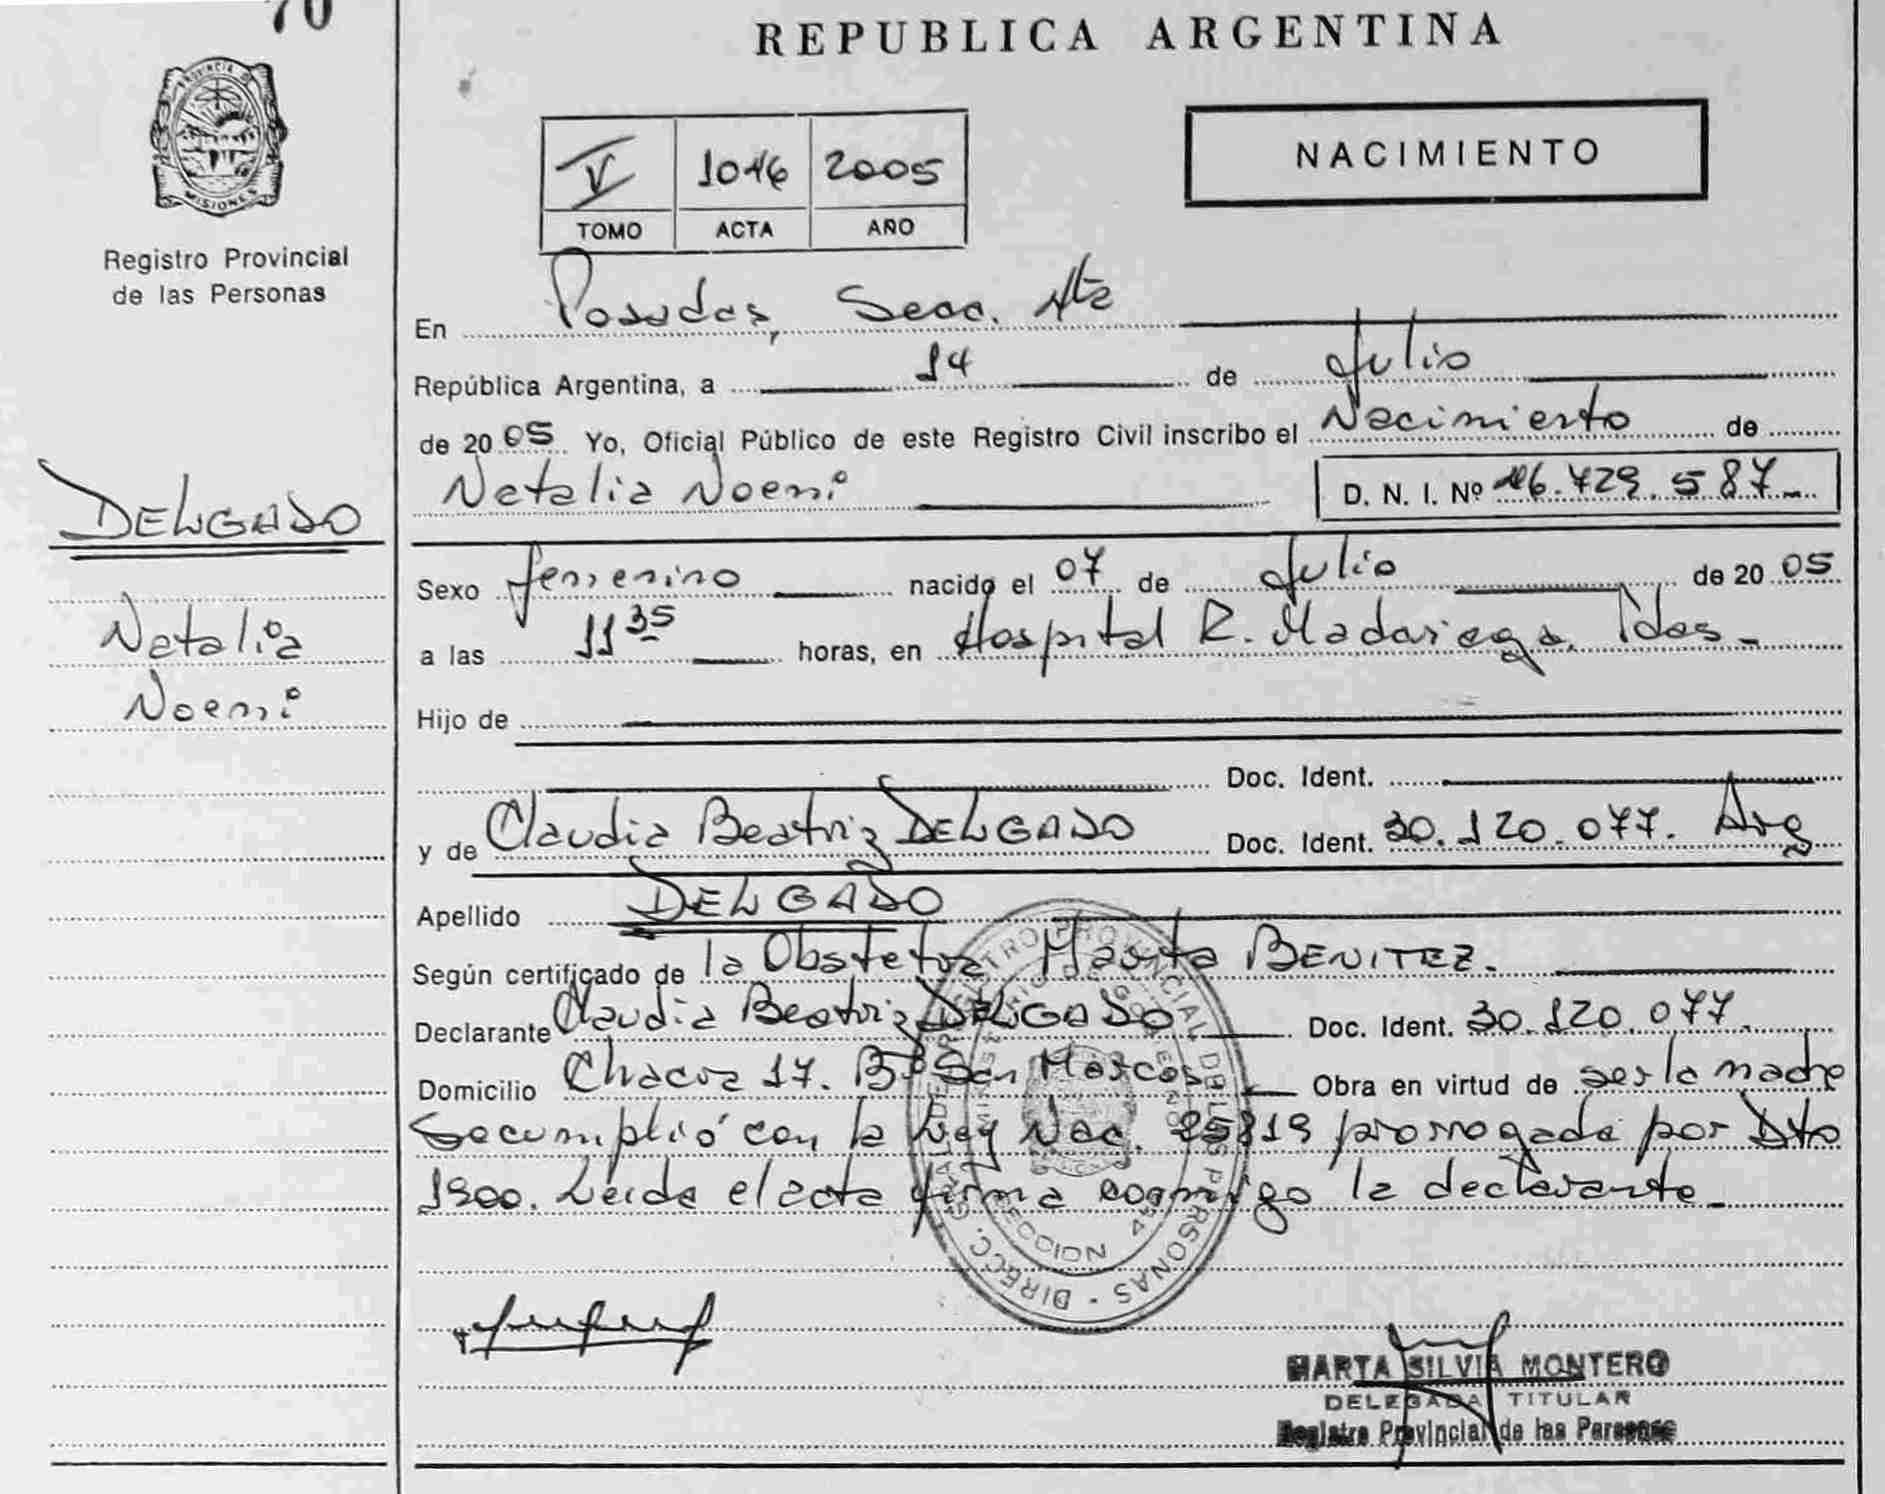 70
REPUBLICA ARGENTINA
PROVINCIA DE
MISIONES
Registro Provincial
de las Personas
V 1016 2005
TOMO ACTA AÑO
NACIMIENTO
En Posadas, Secc. 4ta
República Argentina, a 14 de Julio
de 2005 Yo, Oficial Público de este Registro Civil inscribo el Nacimiento de
Natalia Noemi D. N. I. Nº 46.429.587
DELGADO
Natalia
Noemi
Sexo femenino nacido el 07 de Julio de 2005
a las 11 35 horas, en Hospital R. Madariaga. Pdas.
Hijo de
Doc. Ident.
y de Claudia Beatriz DELGADO Doc. Ident. 30.120.077. Arg
Apellido DELGADO
Según certificado de la Obstetra Marta BENITEZ.
Declarante Claudia Beatriz DELGADO Doc. Ident. 30.120.077.
Domicilio Chacra 17. Bº San Marcos Obra en virtud de ser la madre
Se cumplió con la Ley Nac. 25819 prorrogada por Dto
1900. Leida el acta firma conmigo la declarante
DIRECC. GRAL. DEL REGISTRO PROVINCIAL DE LAS PERSONAS
MINISTERIO DE GOBIERNO
SECCION 4ª
MARTA SILVIA MONTERO
DELEGADA TITULAR
Registro Provincial de las Personas